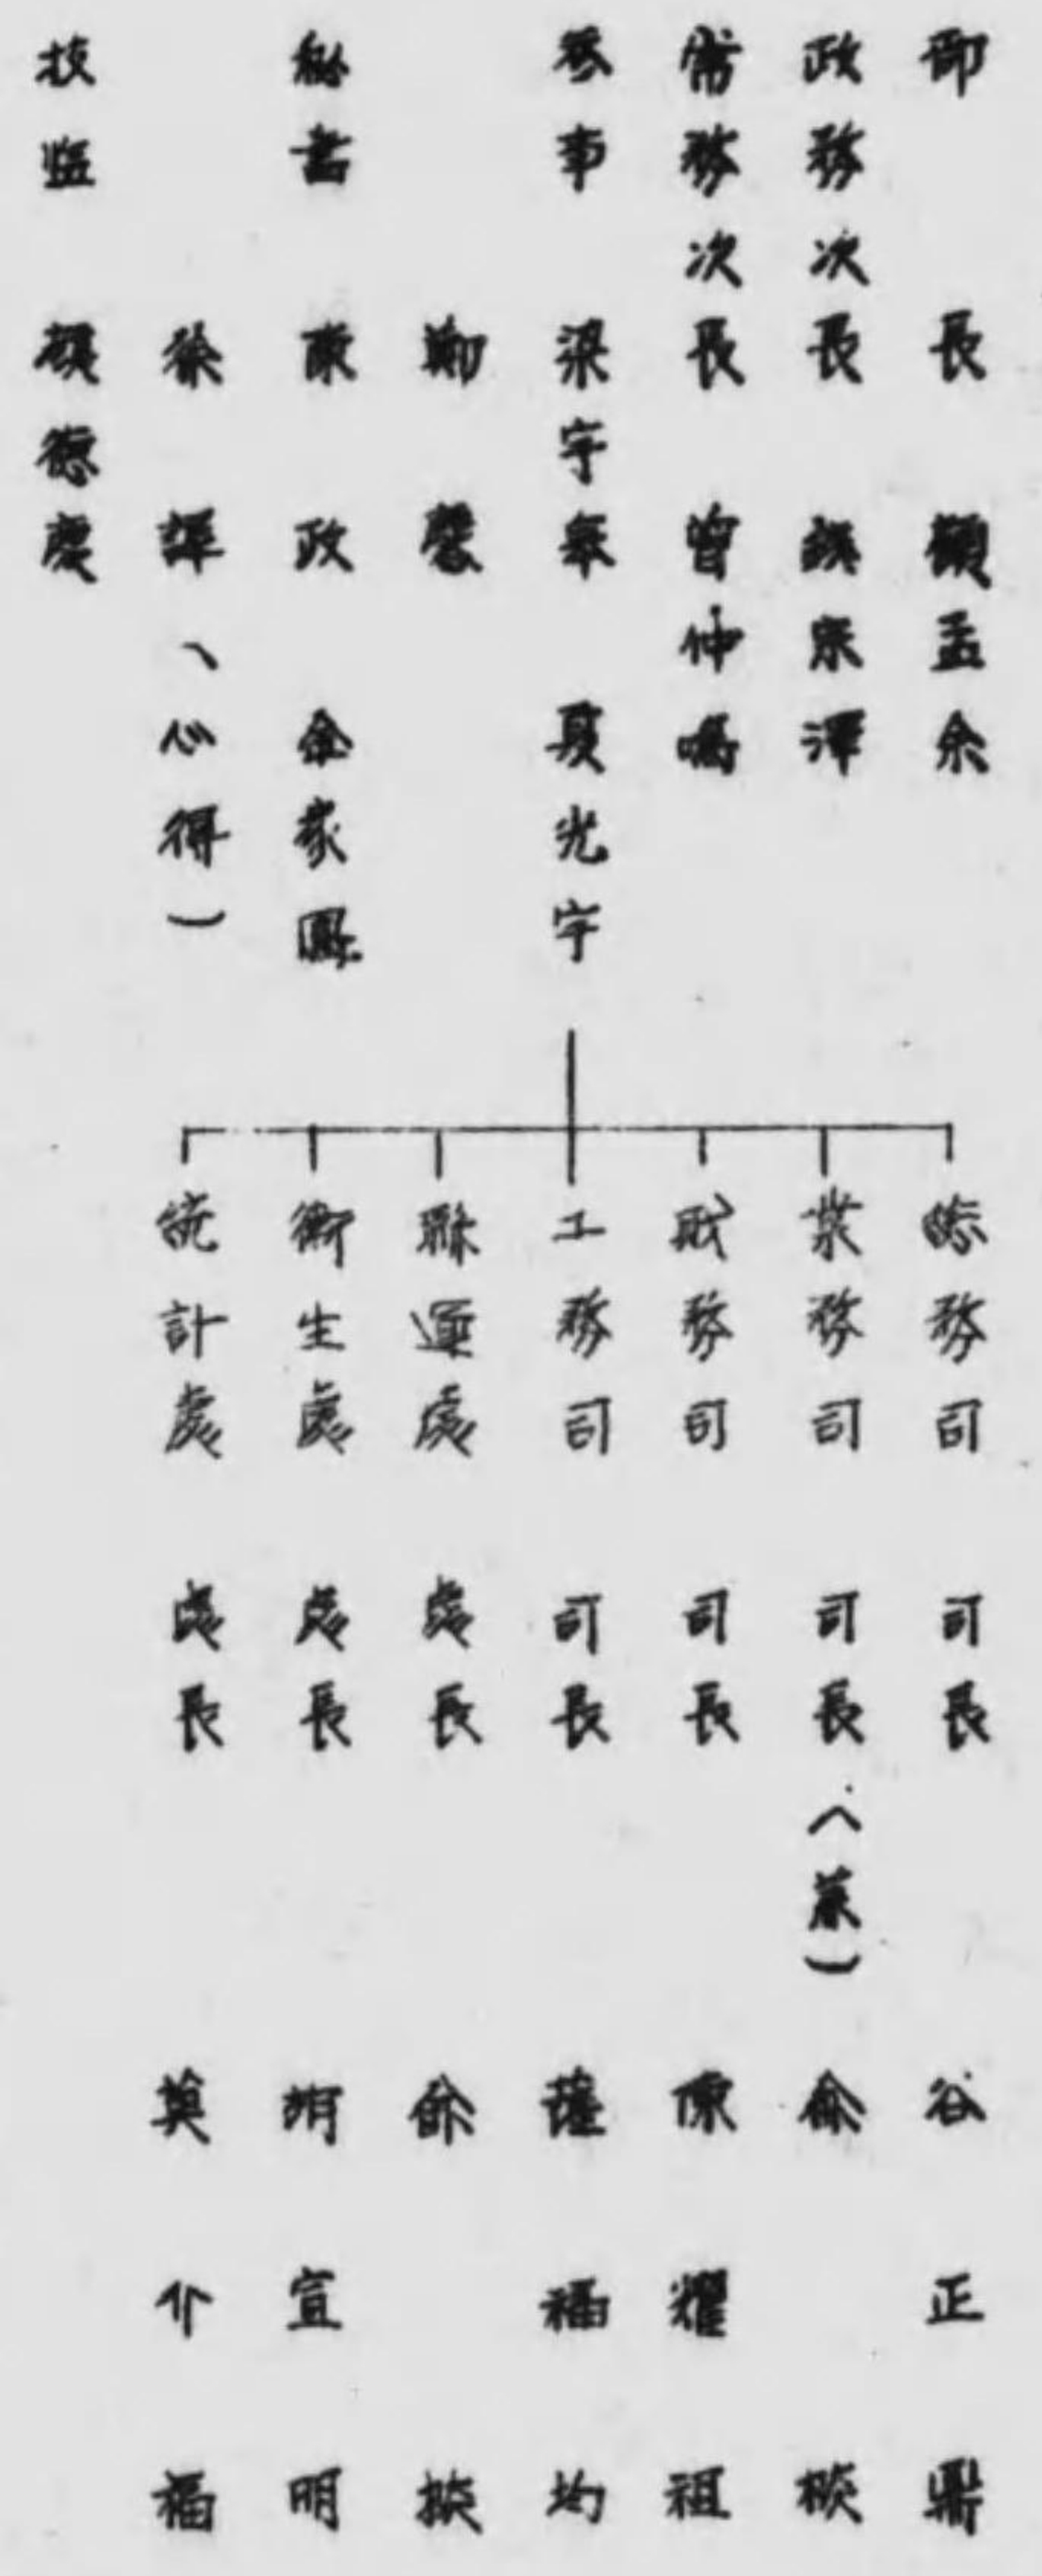 部長 顧孟余
政務次長 錢宗澤
常務次長 曾仲鳴
参事 梁宇皋 夏光宇
鄭
秘書 陳政 金家鳳
徐譯(心得)
技監 顔德慶
総務司 司長 谷正鼎
業務司 司長(兼) 俞棪
財務司 司長 陳耀祖
工務司 司長 薩福均
聯運處 處長 俞棪
衛生處 處長 胡宣明
統計處 處長 莫介福